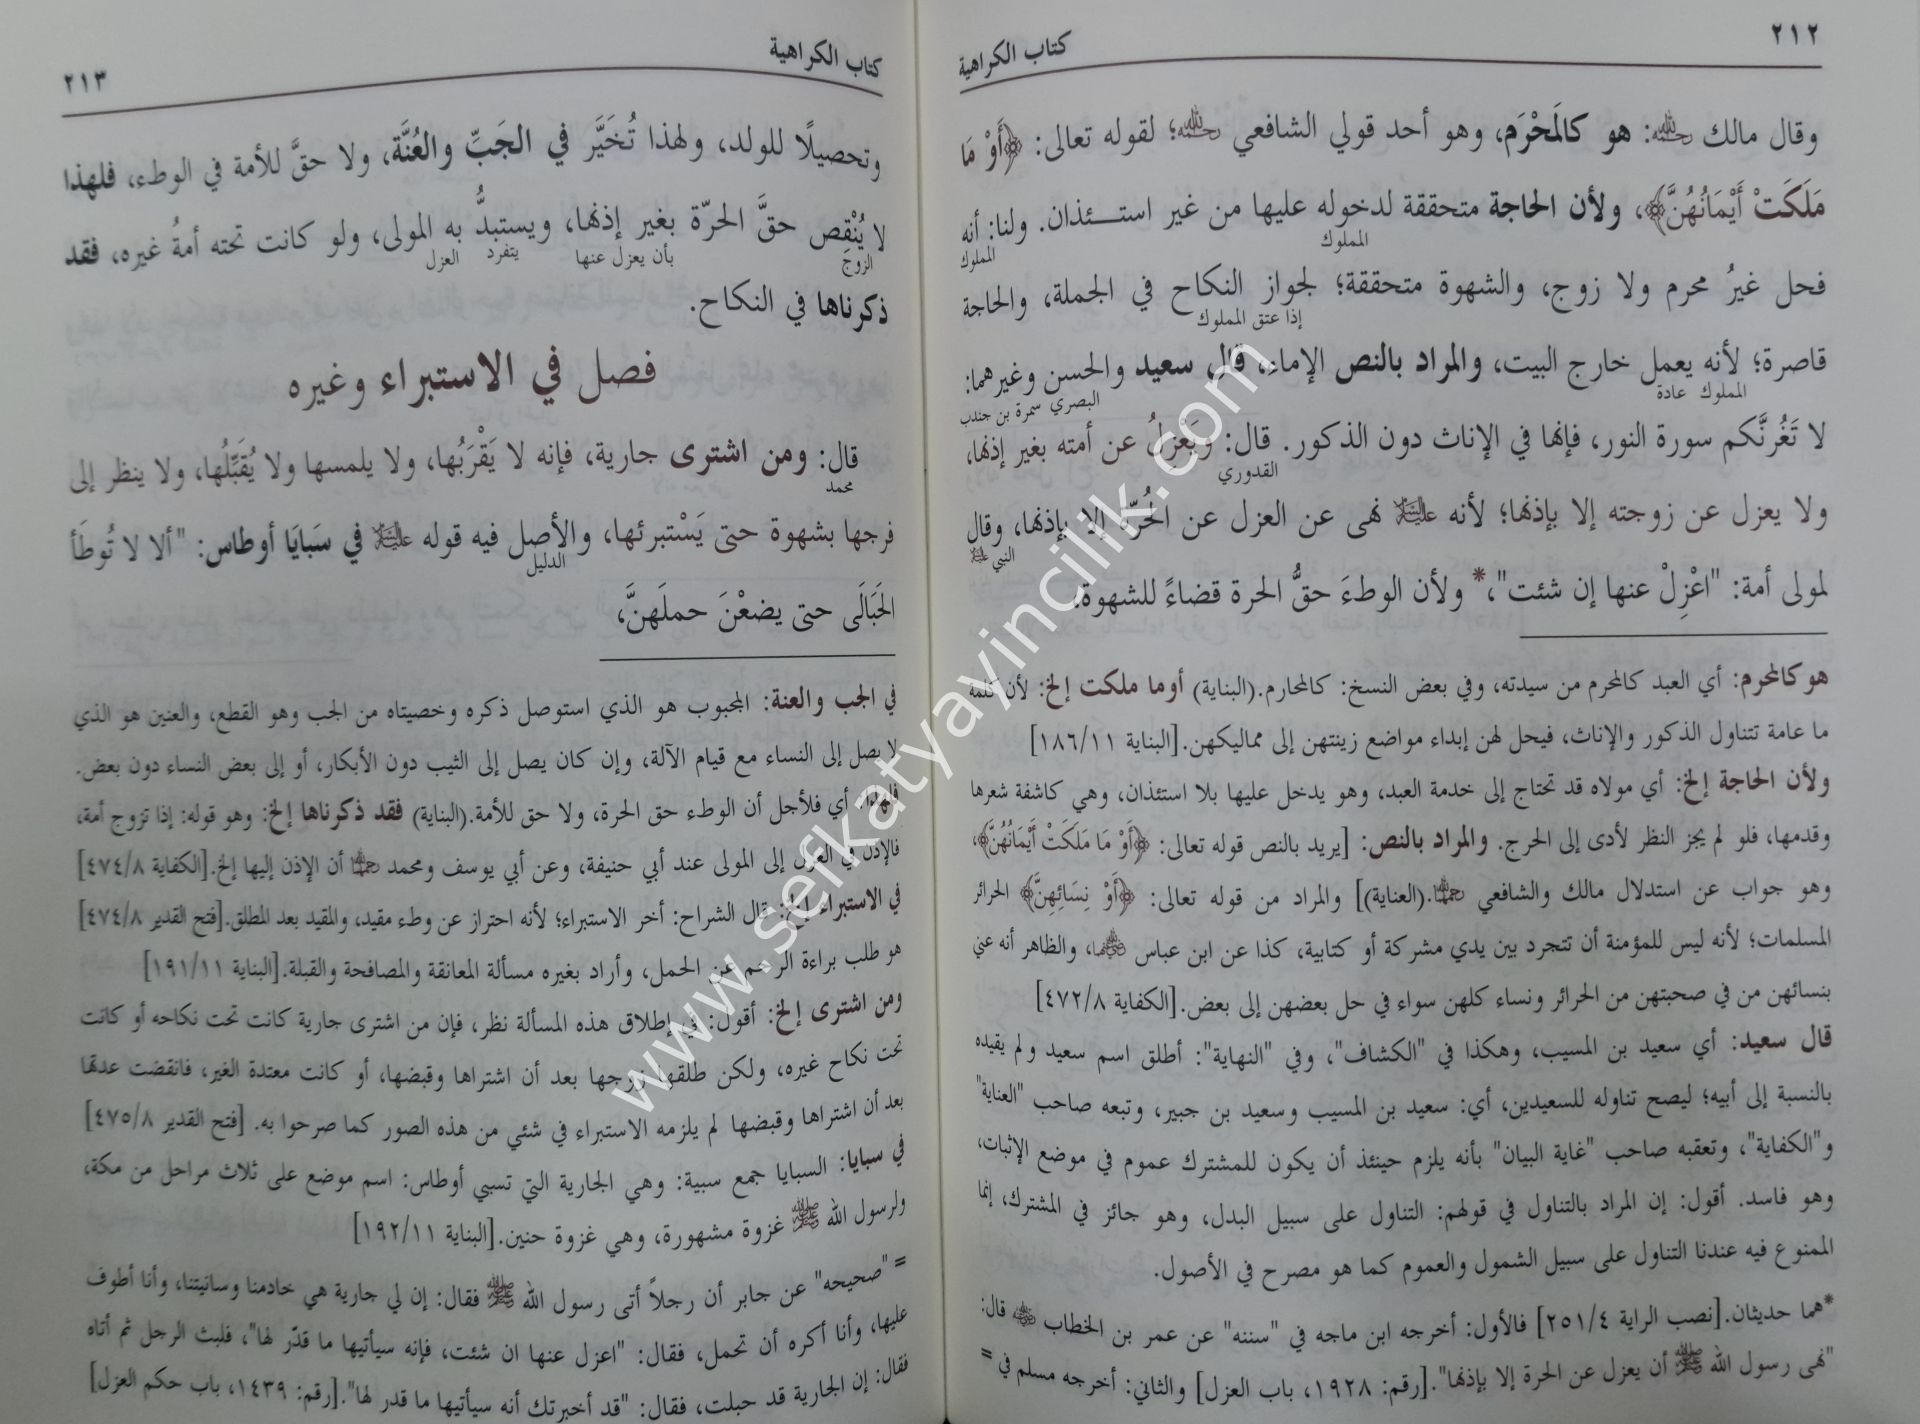 ٢١٢
كتاب الكراهية
وقال مالك رحمه الله: هو كالمَحْرَم، وهو أحد قولي الشافعي رحمه الله؛ لقوله تعالى: ﴿أَوْ مَا
مَلَكَتْ أَيْمَانُهُنَّ﴾، ولأن الحاجة متحققة لدخوله عليها من غير استئذان. ولنا: أنه
المملوك
المملوك
فحل غيرُ محرم ولا زوج، والشهوة متحققة؛ لجواز النكاح في الجملة، والحاجة
إذا عتق المملوك
قاصرة؛ لأنه يعمل خارج البيت، والمراد بالنص الإماء، قال سعيد والحسن وغيرهما:
المملوك عادة
البصري سمرة بن جندب
لا تَغُرنَّكم سورة النور، فإنها في الإناث دون الذكور. قال: ويَعزلُ عن أمته بغير إذنها،
القدوري
ولا يعزل عن زوجته إلا بإذنها؛ لأنه عليه السلام نهى عن العزل عن الحُرّة إلا بإذنها، وقال
النبي عليه السلام
لمولى أمة: "اعْزِلْ عنها إن شئت"،* ولأن الوطءَ حقُّ الحرة قضاءً للشهوة.
هو كالمحرم: أي العبد كالمحرم من سيدته، وفي بعض النسخ: كالمحارم.(البناية) أوما ملكت إلخ: لأن كلمة
ما عامة تتناول الذكور والإناث، فيحل لهن إبداء مواضع زينتهن إلى مماليكهن.[البناية ١٨٦/١١]
ولأن الحاجة إلخ: أي مولاه قد تحتاج إلى خدمة العبد، وهو يدخل عليها بلا استئذان، وهي كاشفة شعرها
وقدمها، فلو لم يجز النظر لأدى إلى الحرج. والمراد بالنص: [يريد بالنص قوله تعالى: ﴿أَوْ مَا مَلَكَتْ أَيْمَانُهُنَّ﴾،
وهو جواب عن استدلال مالك والشافعي رحمهما الله.(العناية)] والمراد من قوله تعالى: ﴿أَوْ نِسَائِهِنَّ﴾ الحرائر
المسلمات؛ لأنه ليس للمؤمنة أن تتجرد بين يدي مشركة أو كتابية، كذا عن ابن عباس رضي الله عنهما، والظاهر أنه عنى
بنسائهن من في صحبتهن من الحرائر ونساء كلهن سواء في حل بعضهن إلى بعض.[الكفاية ٤٧٢/٨]
قال سعيد: أي سعيد بن المسيب، وهكذا في "الكشاف"، وفي "النهاية": أطلق اسم سعيد ولم يقيده
بالنسبة إلى أبيه؛ ليصح تناوله للسعيدين، أي: سعيد بن المسيب وسعيد بن جبير، وتبعه صاحب "العناية"
و"الكفاية"، وتعقبه صاحب "غاية البيان" بأنه يلزم حينئذ أن يكون للمشترك عموم في موضع الإثبات،
وهو فاسد. أقول: إن المراد بالتناول في قولهم: التناول على سبيل البدل، وهو جائز في المشترك، إنما
الممنوع فيه عندنا التناول على سبيل الشمول والعموم كما هو مصرح في الأصول.
*هما حديثان.[نصب الراية ٢٥١/٤] فالأول: أخرجه ابن ماجه في "سننه" عن عمر بن الخطاب رضي الله عنه قال:
"نهى رسول الله ﷺ أن يعزل عن الحرة إلا بإذنها".[رقم: ١٩٢٨، باب العزل] والثاني: أخرجه مسلم في =
كتاب الكراهية
٢١٣
وتحصيلًا للولد، ولهذا تُخَيَّر في الجَبِّ والعُنَّة، ولا حقَّ للأمة في الوطء، فلهذا
لا يُنْقِص حقَّ الحرّة بغير إذنها، ويستبدُّ به المولى، ولو كانت تحته أمةُ غيره، فقد
الزوج
بأن يعزل عنها
يتفرد
العزل
ذكرناها في النكاح.
فصل في الاستبراء وغيره
قال: ومن اشترى جارية، فإنه لا يَقْرَبُها، ولا يلمسها ولا يُقَبِّلُها، ولا ينظر إلى
محمد
فرجها بشهوة حتى يَسْتبرئها، والأصل فيه قوله عليه السلام في سَبَايَا أوطاس: "ألا لا تُوطَأ
الدليل
الحَبَالَى حتى يضعْنَ حملَهنَّ،
في الجب والعنة: المجبوب هو الذي استوصل ذكره وخصيتاه من الجب وهو القطع، والعنين هو الذي
لا يصل إلى النساء مع قيام الآلة، وإن كان يصل إلى الثيب دون الأبكار، أو إلى بعض النساء دون بعض.
فلهذا: أي فلأجل أن الوطء حق الحرة، ولا حق للأمة.(البناية) فقد ذكرناها إلخ: وهو قوله: إذا تزوج أمة،
فالإذن في العزل إلى المولى عند أبي حنيفة، وعن أبي يوسف ومحمد رحمهما الله أن الإذن إليها إلخ.[الكفاية ٤٧٤/٨]
في الاستبراء إلخ: قال الشراح: أخر الاستبراء؛ لأنه احتراز عن وطء مقيد، والمقيد بعد المطلق.[فتح القدير ٤٧٤/٨]
هو طلب براءة الرحم عن الحمل، وأراد بغيره مسألة المعانقة والمصافحة والقبلة.[البناية ١٩١/١١]
ومن اشترى إلخ: أقول: في إطلاق هذه المسألة نظر، فإن من اشترى جارية كانت تحت نكاحه أو كانت
تحت نكاح غيره، ولكن طلقها زوجها بعد أن اشتراها وقبضها، أو كانت معتدة الغير، فانقضت عدتها
بعد أن اشتراها وقبضها لم يلزمه الاستبراء في شئي من هذه الصور كما صرحوا به. [فتح القدير ٤٧٥/٨]
في سبايا: السبايا جمع سبية: وهي الجارية التي تسبي أوطاس: اسم موضع على ثلاث مراحل من مكة،
ولرسول الله ﷺ غزوة مشهورة، وهي غزوة حنين.[البناية ١٩٢/١١]
= "صحيحه" عن جابر أن رجلاً أتى رسول الله ﷺ فقال: إن لي جارية هي خادمنا وسانيتنا، وأنا أطوف
عليها، وأنا أكره أن تحمل، فقال: "اعزل عنها ان شئت، فإنه سيأتيها ما قدّر لها"، فلبث الرجل ثم أتاه
فقال: إن الجارية قد حبلت، فقال: "قد أخبرتك أنه سيأتيها ما قدر لها".[رقم: ١٤٣٩، باب حكم العزل]
www.sefkatyayincilik.com